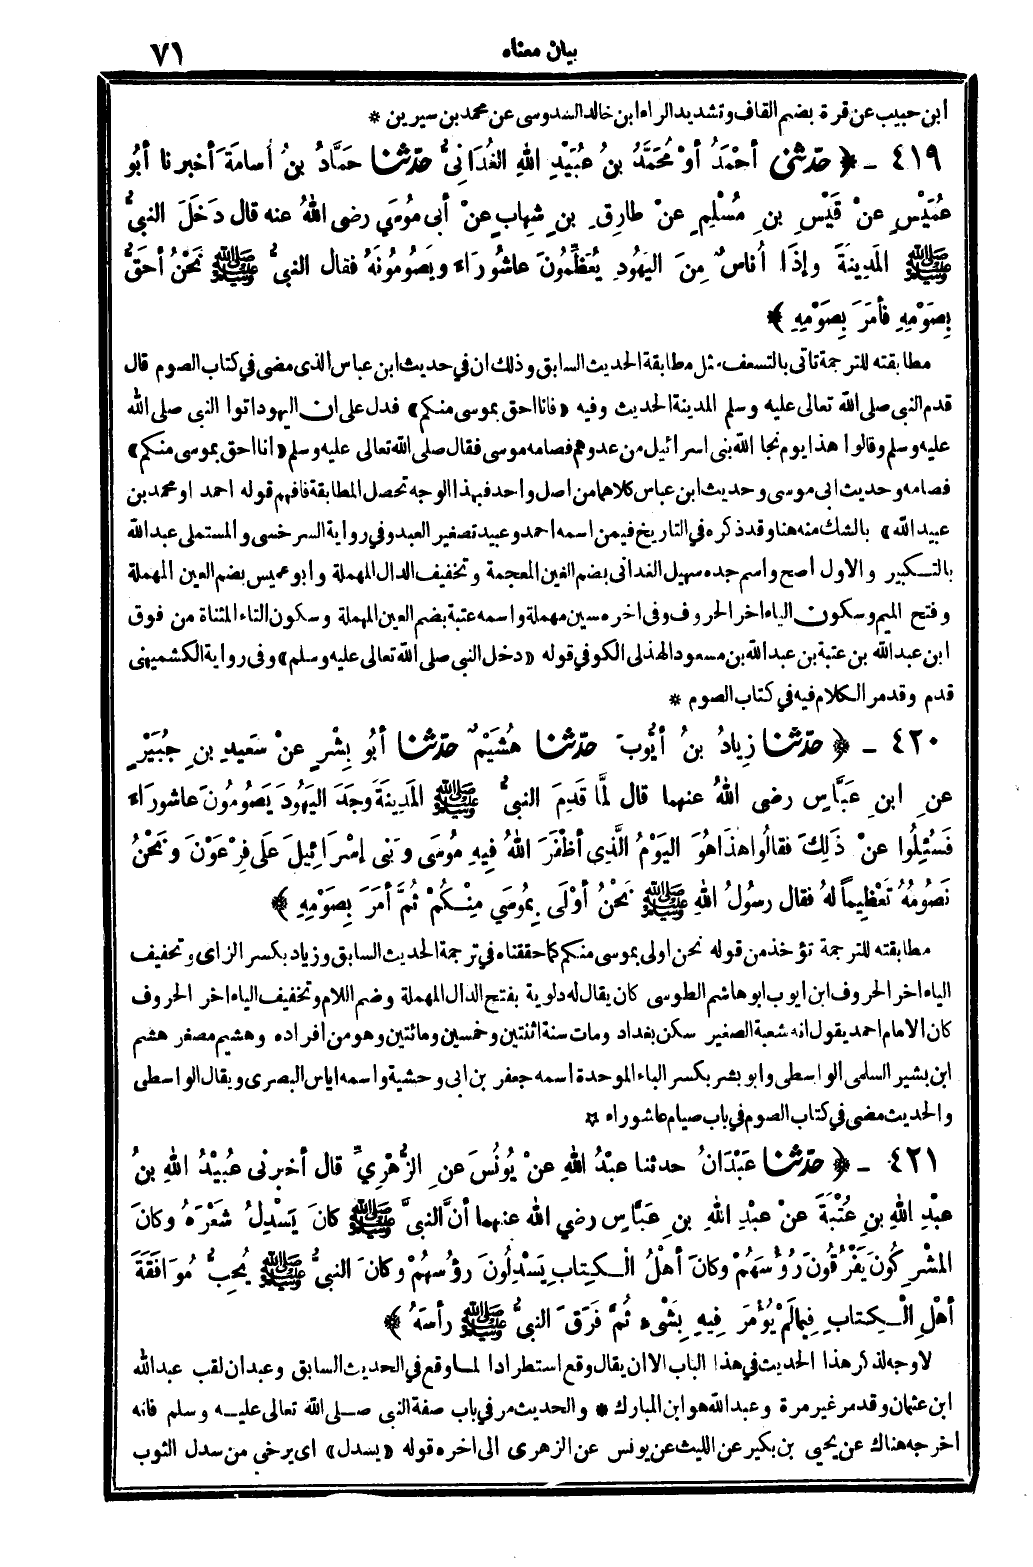 بيان معناه ٧١
ابن حبيب عن قرة بضم القاف وتشديد الراء ابن خالد السدوسى عن محمد بن سيرين *
٤١٩ ـ ﴿ حَدَّثَنِى أحْمَدُ أوْ مُحَمَّدُ بنُ عُبَيْدِ اللهِ الغُدَانِىُّ حَدَّثَنَا حَمَّادُ بنُ أُسامَةَ أخبرنا أبُو
عُمَيْسٍ عنْ قَيْسِ بنِ مُسْلِمٍ عنْ طارِقِ بنِ شِهابٍ عنْ أبى مُوسَى رضى اللهُ عنه قال دَخَلَ النبىُّ
ﷺ المَدِينَةَ وإذَا أُناسٌ مِنَ اليَهُودِ يُعَظِّمُونَ عاشُورَاءَ ويَصُومُونَهُ فقال النبىُّ ﷺ نَحْنُ أحَقُّ
بِصَوْمِهِ فأمَرَ بِصَوْمِهِ ﴾
مطابقته للترجمة تأتى بالتسعف مثل مطابقة الحديث السابق وذلك ان فى حديث ابن عباس الذى مضى فى كتاب الصوم قال
قدم النبى صلى الله تعالى عليه وسلم المدينة الحديث وفيه «فانا احق بموسى منكم» فدل على ان اليهود اتوا النبى صلى الله
عليه وسلم وقالوا هذا يوم نجا الله بنى اسرائيل من عدوهم فصامه موسى فقال صلى الله تعالى عليه وسلم «انا احق بموسى منكم»
فصامه وحديث ابى موسى وحديث ابن عباس كلاهما من اصل واحد فبهذا الوجه تحصل المطابقة فافهم قوله احمد او محمد بن
عبيد الله» بالشك منه هنا وقد ذكره فى التاريخ فيمن اسمه احمد وعبيد تصغير العبد وفى رواية السرخسى والمستملى عبد الله
بالتكبير والاول أصح واسم جده سهيل الغدانى بضم الغين المعجمة وتخفيف الدال المهملة وابو عميس بضم العين المهملة
وفتح الميم وسكون الياء اخر الحروف وفى اخره سين مهملة واسمه عتبة بضم العين المهملة وسكون التاء المثناة من فوق
ابن عبد الله بن عتبة بن عبد الله بن مسعود الهذلى الكوفى قوله «دخل النبى صلى الله تعالى عليه وسلم» وفى رواية الكشميهنى
قدم وقد مر الكلام فيه فى كتاب الصوم *
٤٢٠ ـ ﴿ حَدَّثَنَا زِيادُ بنُ أيُّوبَ حَدَّثَنَا هُشَيْمٌ حَدَّثَنَا أبُو بِشْرٍ عنْ سَعِيدِ بنِ جُبَيْرٍ
عنِ ابنِ عَبَّاسٍ رضى اللهُ عنهما قال لَمَّا قَدِمَ النبىُّ ﷺ المَدِينَةَ وجَدَ اليَهُودَ يَصُومُونَ عاشُورَاءَ
فَسُئِلُوا عنْ ذَلِكَ فقالُوا هذَا هُوَ اليَوْمُ الَّذِى أظْفَرَ اللهُ فِيهِ مُوسَى وبَنِى إسْرَائِيلَ عَلَى فِرْعَوْنَ ونَحْنُ
نَصُومُهُ تَعْظِيماً لهُ فقال رسُولُ اللهِ ﷺ نَحْنُ أوْلَى بِمُوسَى مِنْكُمْ ثُمَّ أمَرَ بِصَوْمِهِ ﴾
مطابقته للترجمة تؤخذ من قوله نحن اولى بموسى منكم كما حققناه فى ترجمة الحديث السابق وزياد بكسر الزاى وتخفيف
الياء اخر الحروف ابن ايوب ابو هاشم الطوسى كان يقال له دلوية بفتح الدال المهملة وضم اللام وتخفيف الياء اخر الحروف
كان الامام احمد يقول انه شعبة الصغير سكن بغداد ومات سنة اثنتين وخمسين ومائتين وهو من افراده وهشيم مصغر هشم
ابن بشير السلمى الواسطى وابو بشر بكسر الباء الموحدة اسمه جعفر بن ابى وحشية واسمه اياس البصرى ويقال الواسطى
والحديث مضى فى كتاب الصوم فى باب صيام عاشوراء *
٤٢١ ـ ﴿ حَدَّثَنَا عَبْدَانُ حدثنا عبْدُ اللهِ عنْ يُونُسَ عنِ الزُّهْرِىِّ قال أخبرنى عُبَيْدُ اللهِ بنُ
عبْدِ اللهِ بنِ عُتْبَةَ عنْ عبْدِ اللهِ بنِ عَبَّاسٍ رضي الله عنهما أنَّ النبىَّ ﷺ كانَ يَسْدِلُ شَعْرَهُ وكانَ
المُشْرِكُونَ يَفْرُقُونَ رُؤُسَهُمْ وكانَ أهْلُ الْكِتابِ يَسْدِلُونَ رؤُسهُمْ وكانَ النبىُّ ﷺ يُحِبُّ مُوَافَقَةَ
أهْلِ الْكِتابِ فِيما لَمْ يُؤْمَرَ فِيهِ بِشَىْءٍ ثُمَّ فَرَقَ النبىُّ ﷺ رأسَهُ ﴾
لا وجه لذكر هذا الحديث فى هذا الباب الا ان يقال وقع استطرادا لما وقع فى الحديث السابق وعبدان لقب عبد الله
ابن عثمان وقد مر غير مرة وعبد الله هو ابن المبارك * والحديث مر فى باب صفة النبى صلى الله تعالى عليه وسلم فانه
اخرجه هناك عن يحيى بن بكير عن الليث عن يونس عن الزهرى الى اخره قوله «يسدل» اى يرخى من سدل الثوب